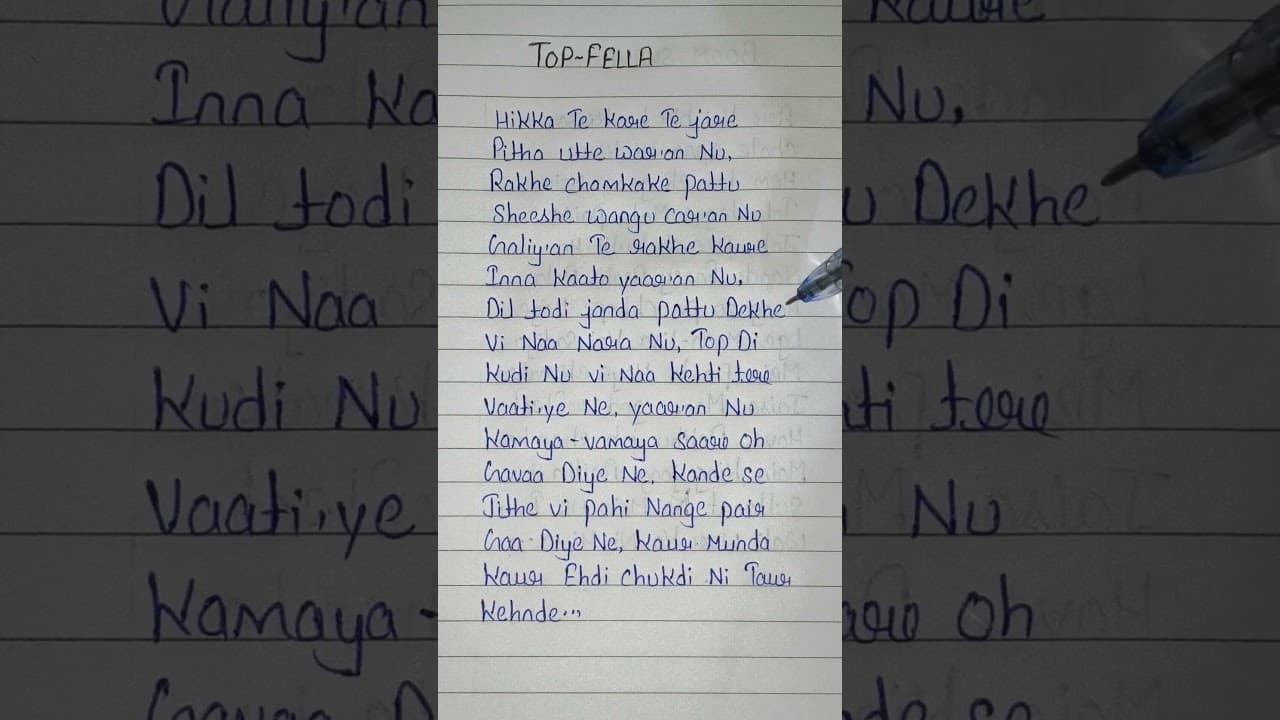 TOP-FELLA
Hikka Te kare Te jare
Pitho utte waran Nu,
Rakhe chamkake pattu
Sheeshe wangu caran Nu
Galiyan Te rakhe kaure
Inna kaato yaaran Nu,
Dil todi janda pattu Dekhe
Vi Naa Nara Nu, Top Di
Kudi Nu vi Naa Kehti tere
Vaatiye Ne, yaaran Nu
Kamaya-vamaya Saara oh
Gavaa Diye Ne, Kande se
Jithe vi pahi Nange pair
Gaa Diye Ne, Kaur Munda
Kaur Ehdi Chukdi Ni Taur
Kehnde...